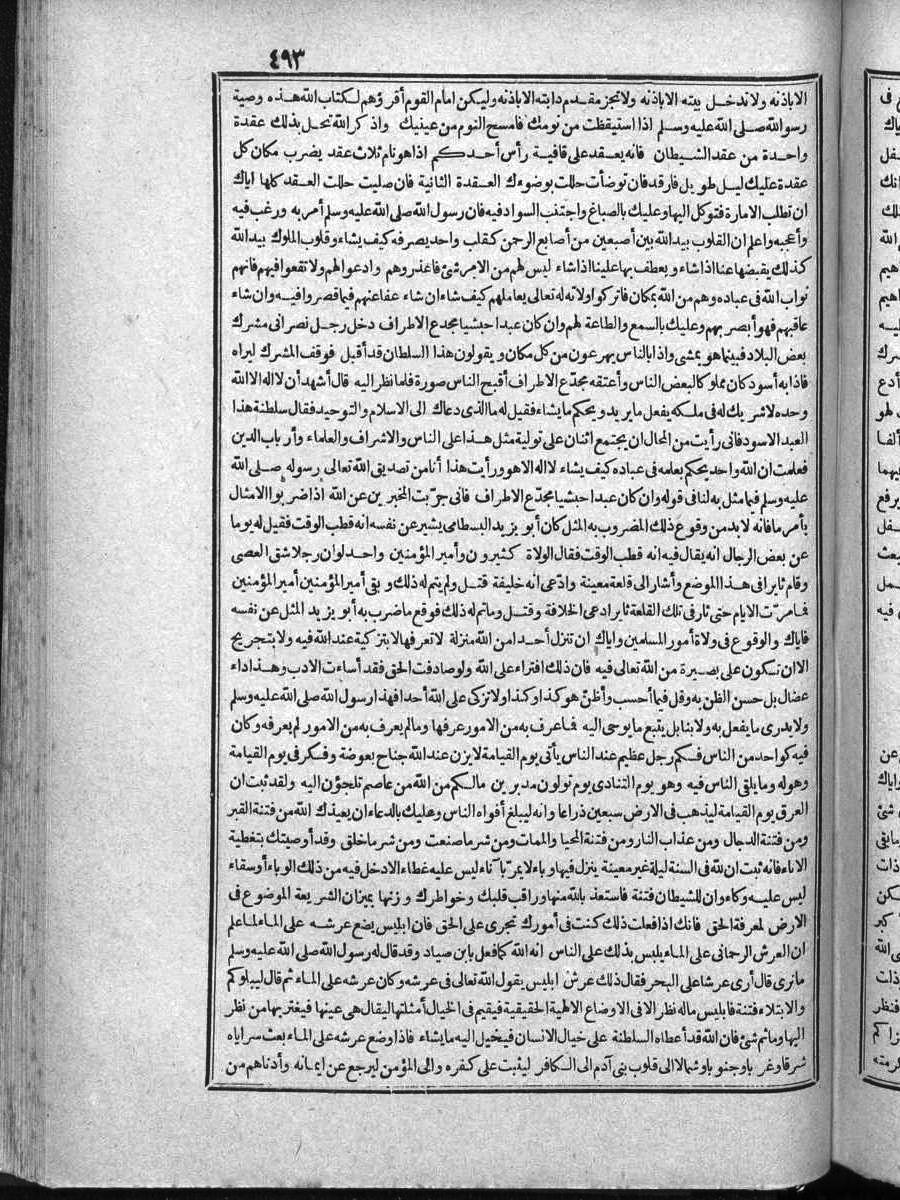 ٤٩٣
الا باذنه ولا تدخل بيته الا باذنه ولا تجز مقدم دابته الا باذنه وليكن امام القوم أقرؤهم لكتاب الله هذه وصية
رسول الله صلى الله عليه وسلم اذا استيقظت من نومك فامسح النوم من عينيك واذكر الله تحل بذلك عقدة
واحدة من عقد الشيطان فانه يعقد على قافية رأس أحدكم اذا هو نام ثلاث عقد يضرب مكان كل
عقدة عليك ليل طويل فارقد فان توضأت حلت بوضوءك العقدة الثانية فان صليت حلت العقد كلها اياك
ان تطلب الامارة فتوكل اليها وعليك بالصباغ واجتنب السواد فيه فان رسول الله صلى الله عليه وسلم أمر به ورغب فيه
وأعجبه واعلم ان القلوب بيد الله بين أصبعين من أصابع الرحمن كقلب واحد يصرفه كيف يشاء وقلوب الملوك بيد الله
كذلك يقبضها عنا اذا شاء ويعطف بها علينا اذا شاء ليس لهم من الامر شئ فاعذروهم وادعوا لهم ولا تقعوا فيهم فانهم
نواب الله فى عباده وهم من الله بمكان فاتركوا ولاته له تعالى يعاملهم كيف شاء ان شاء عفا عنهم فيما قصروا فيه وان شاء
عاقبهم فهو أبصر بهم وعليك بالسمع والطاعة لهم وان كان عبدا حبشيا مجدع الاطراف دخل رجل نصرانى مشرك
بعض البلاد فبينما هو يمشى واذا بالناس يهرعون من كل مكان ويقولون هذا السلطان قد أقبل فوقف المشرك ليراه
فاذا به أسود كان مملوكا لبعض الناس وأعتقه مجدع الاطراف أقبح الناس صورة فلما نظر اليه قال أشهد أن لا اله الا الله
وحده لا شريك له فى ملكه يفعل ما يريد ويحكم ما يشاء فقيل له ما الذى دعاك الى الاسلام والتوحيد فقال سلطنة هذا
العبد الاسود فانى رأيت من المحال ان يجتمع اثنان على تولية مثل هذا على الناس والاشراف والعلماء وأرباب الدين
فعلمت ان الله واحد يحكم بعلمه فى عباده كيف يشاء لا اله الا هو ورأيت هذا أنا من تصديق الله تعالى رسوله صلى الله
عليه وسلم فيما مثل به لنا فى قوله وان كان عبدا حبشيا مجدع الاطراف فانى جربت المخبرين عن الله اذا ضربوا الامثال
بأمر ما فانه لا بد من وقوع ذلك المضروب به المثل كان أبو يزيد البسطامى يشير عن نفسه انه قطب الوقت فقيل له يوما
عن بعض الرجال انه يقال فيه انه قطب الوقت فقال الولاة كثيرون وأمير المؤمنين واحد لو ان رجلا شق العصى
وقام ثايرا فى هذا الموضع وأشار الى قلعة معينة وادعى انه خليفة قتل ولم يتم له ذلك وبقى أمير المؤمنين أمير المؤمنين
فما مرت الايام حتى ثار فى تلك القلعة ثاير ادعى الخلافة وقتل وما تم له ذلك فوقع ما ضرب به أبو يزيد المثل عن نفسه
فاياك والوقوع فى ولاة أمور المسلمين واياك ان تنزل أحدا من الله منزلة لا تعرفها لا بتزكية عند الله فيه ولا بتجريح
الا ان تكون على بصيرة من الله تعالى فيه فان ذلك افتراء على الله ولو صادفت الحق فقد أساءت الادب وهذا داء
عضال بل حسن الظن به وقل فيما أحسب وأظن هو كذا وكذا ولا تزكى على الله أحدا فهذا رسول الله صلى الله عليه وسلم
ولا يدرى ما يفعل به ولا بنا بل يتبع ما يوحى اليه فما عرف به من الامور عرفها وما لم يعرف به من الامور لم يعرفه وكان
فيه كواحد من الناس فكم رجل عظيم عند الناس يأتى يوم القيامة لا يزن عند الله جناح بعوضة وفكر فى يوم القيامة
وهوله وما يلقى الناس فيه وهو يوم التنادى يوم تولون مدبرين مالكم من الله من عاصم تلجؤن اليه ولقد ثبت ان
العرق يوم القيامة ليذهب فى الارض سبعين ذراعا وانه ليبلغ أفواه الناس وعليك بالدعاء ان يعيذك الله من فتنة القبر
ومن فتنة الدجال ومن عذاب النار ومن فتنة المحيا والممات ومن شر ما صنعت ومن شر ما خلق وقد أوصيتك بتغطية
الاناء فانه ثبت ان لله فى السنة ليلة غير معينة ينزل فيها وباء لا يمر بآناء ليس عليه غطاء الا دخل فيه من ذلك الوباء أو سقاء
ليس عليه وكاء وان للشيطان فتنة فاستعذ بالله منها وراقب قلبك وخواطرك وزنها بميزان الشريعة الموضوع فى
الارض لمعرفة الحق فانك اذا فعلت ذلك كنت فى أمورك تجرى على الحق فان ابليس يضع عرشه على الماء لما علم
ان العرش الرحمانى على الماء يلبس بذلك على الناس انه الله كما فعل بابن صياد وقد قال له رسول الله صلى الله عليه وسلم
ما ترى قال أرى عرشا على البحر فقال ذلك عرش ابليس يقول الله تعالى فى عرشه وكان عرشه على الماء ثم قال ليبلوكم
والابتلاء فتنة فابليس ماله نظر الا فى الاوضاع الالهية الحقيقية فيقيم فى الخيال أمثلتها ليقال هى عينها فيغتر بها من نظر
اليها وما ثم شئ فان الله قد أعطاه السلطنة على خيال الانسان فيخيل اليه ما يشاء فاذا وضع عرشه على الماء بعث سراياه
شرقا وغربا وجنوبا وشمالا الى قلوب بنى آدم الى الكافر ليثبت على كفره والى المؤمن ليرجع عن ايمانه وأدناهم من